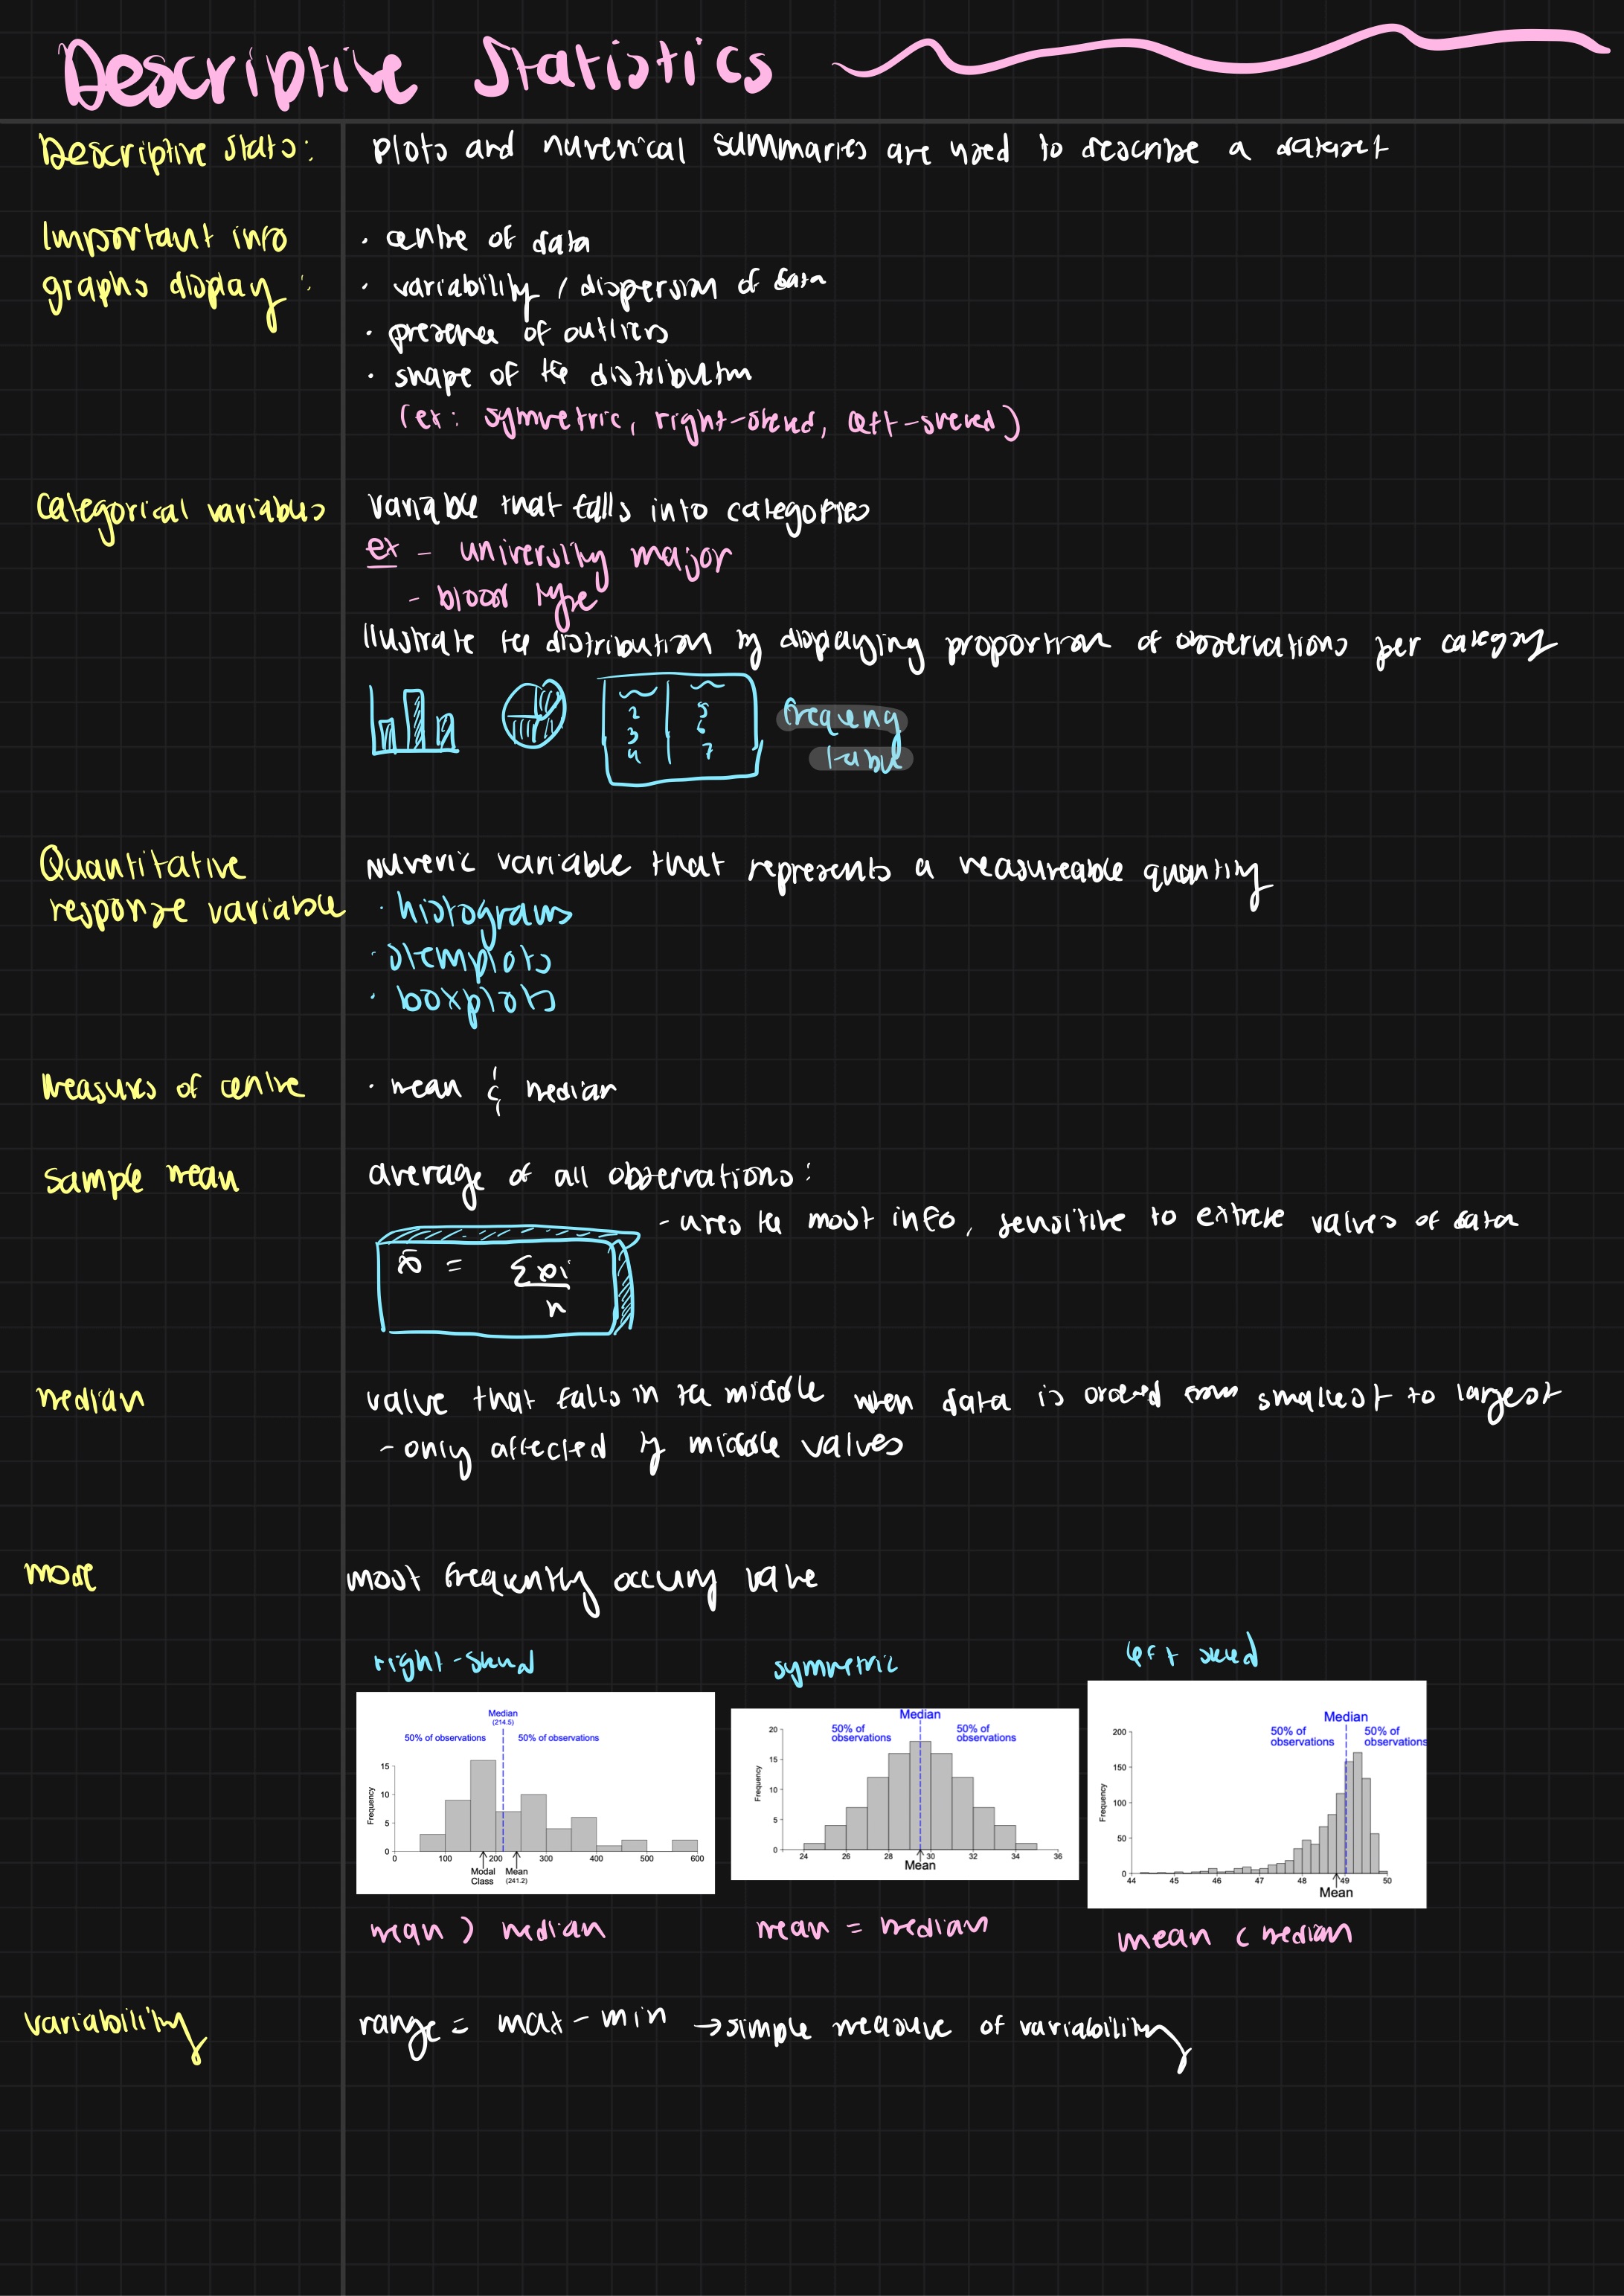 Descriptive Statistics
Descriptive Stats: plots and numerical summaries are used to describe a dataset
Important info graphs display:
• centre of data
• variability / dispersion of data
• presence of outliers
• shape of the distribution
(ex: symmetric, right-skewed, left-skewed)
Categorical variables
variable that falls into categories
ex - university major
- blood type
illustrate the distribution by displaying proportion of observations per category
2 5
3 6
4 7
frequency
table
Quantitative response variable
numeric variable that represents a measureable quantity
• histograms
• stemplots
• boxplots
measures of centre
• mean & median
sample mean
average of all observations:
- uses the most info, sensitive to extreme values of data
x̄ = Σxi / n
median
value that falls in the middle when data is ordered from smallest to largest
- only affected by middle values
mode
most frequently occuring value
right-skewed
Median
(214.5)
50% of observations 50% of observations
Frequency
15
10
5
0
0 100 200 300 400 500 600
Modal Class
Mean
(241.2)
mean > median
symmetric
Median
50% of observations
50% of observations
Frequency
20
15
10
5
0
24 26 28 30 32 34 36
Mean
mean = median
left skewed
Median
50% of observations
50% of observations
Frequency
200
150
100
50
0
44 45 46 47 48 49 50
Mean
mean < median
variability
range = max - min → simple measure of variability